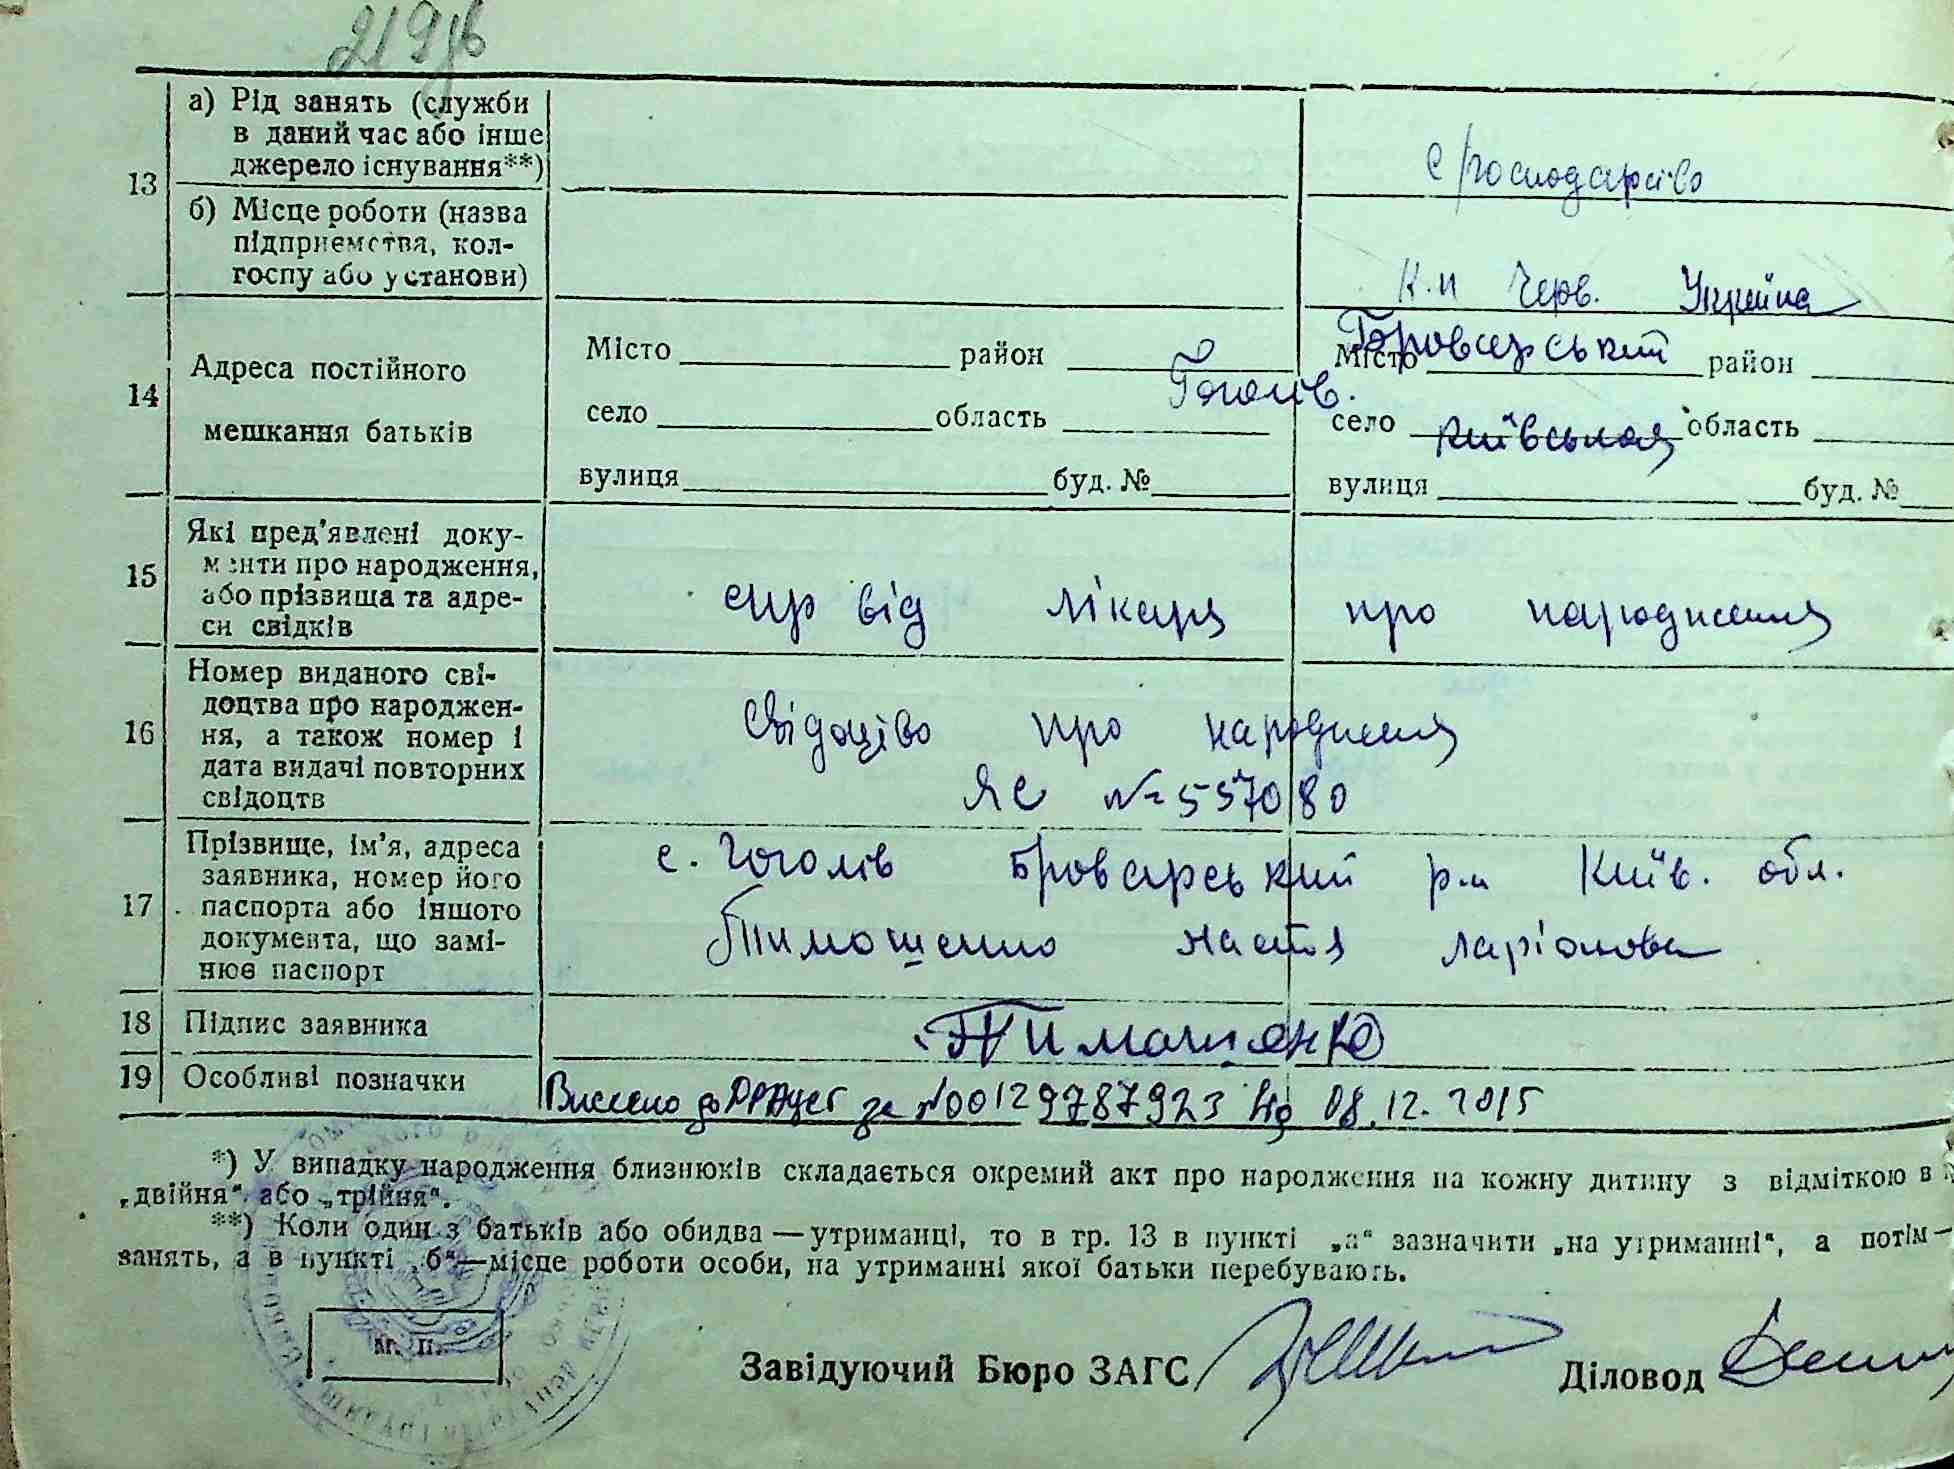 219зв
а) Рід занять (служби
в даний час або інше
джерело існування**)
с/господарство
13
б) Місце роботи (назва
підприємства, кол-
госпу або установи)
к.п Черв. Україна
14
Адреса постійного
мешкання батьків
Місто район
село область
вулиця буд. №
Місто Броварський район
Гоголів.
село Київська область
вулиця буд. №
15
Які пред'явлені доку-
менти про народження,
або прізвища та адре-
си свідків
спр від лікаря про народження
16
Номер виданого сві-
доцтва про народжен-
ня, а також номер і
дата видачі повторних
свідоцтв
свідоцтво про народження
ЯС № 557080
17
Прізвище, ім'я, адреса
заявника, номер його
паспорта або іншого
документа, що замі-
нює паспорт
с. Гоголів Броварський р-н Київ. обл.
Тимошенко Настя Ларіонова
18 Підпис заявника
Тимошенко
19 Особливі позначки
Внесено до ДРАЦСГ за №00129787923 від 08.12.2015
*) У випадку народження близнюків складається окремий акт про народження на кожну дитину з відміткою в
„двійня“ або „трійня“.
**) Коли один з батьків або обидва — утриманці, то в гр. 13 в пункті „а“ зазначити „на утриманні“, а потім —
занять, а в пункті „б“ — місце роботи особи, на утриманні якої батьки перебувають.
М. П.
Завідуючий Бюро ЗАГС
Діловод